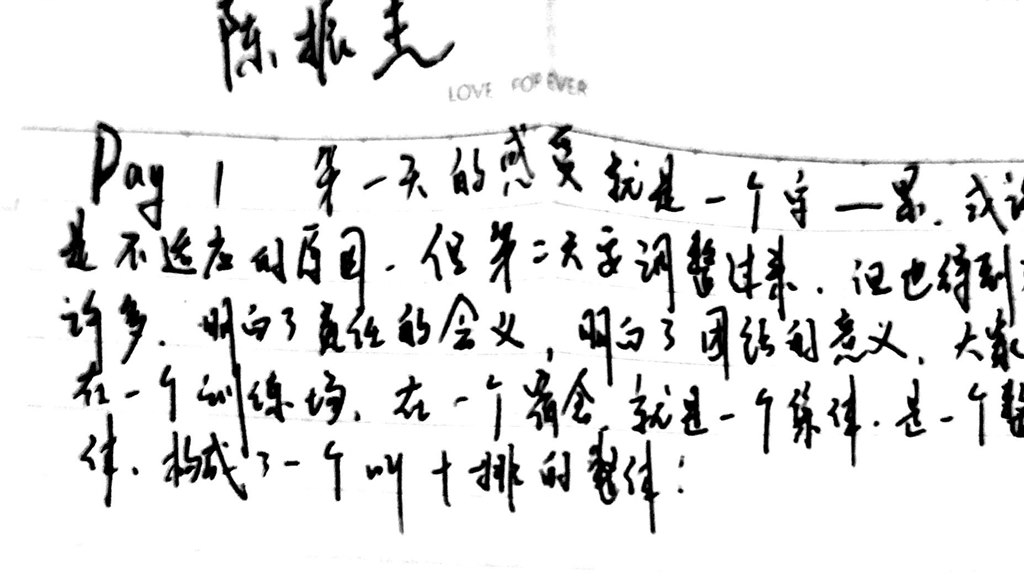 陈振杰
LOVE FOREVER
Day 1 第一天的感受就是一个字—累.或许
是不适应的原因.但第二天要调整过来.但也得到了
许多.明白了责任的含义,明白了团结的意义.大家
在一个训练场.在一个宿舍就是一个集体.是一个整
体.构成了一个叫十排的整体!